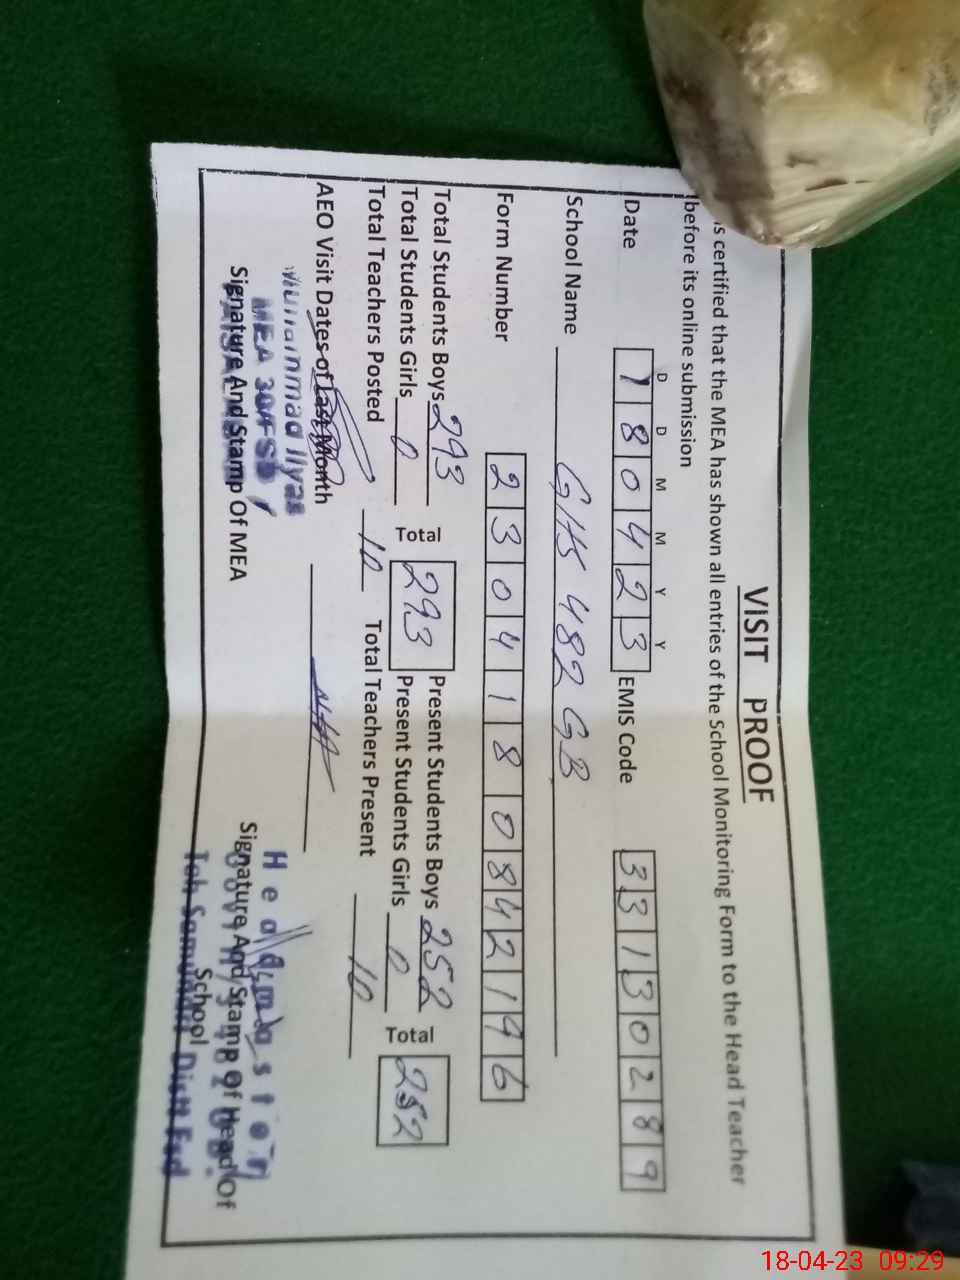 VISIT PROOF
is certified that the MEA has shown all entries of the School Monitoring Form to the Head Teacher
before its online submission
D D M M Y Y
Date 1 8 0 4 2 3 EMIS Code 3 3 1 3 0 2 8 9
School Name GHS 482 GB
Form Number 2 3 0 4 1 8 0 8 4 2 1 9 6
Total Students Boys 293 Total 293 Present Students Boys 252 Total 252
Total Students Girls 0 Present Students Girls 0
Total Teachers Posted 10 Total Teachers Present 10
AEO Visit Dates of Last Month
Muhammad Ilyas
MEA 30/FSD
Signature And Stamp Of MEA
Headmaster
Signature And Stamp Of Head Of
School
Teh Samundri Distt Fsd
18-04-23 09:29